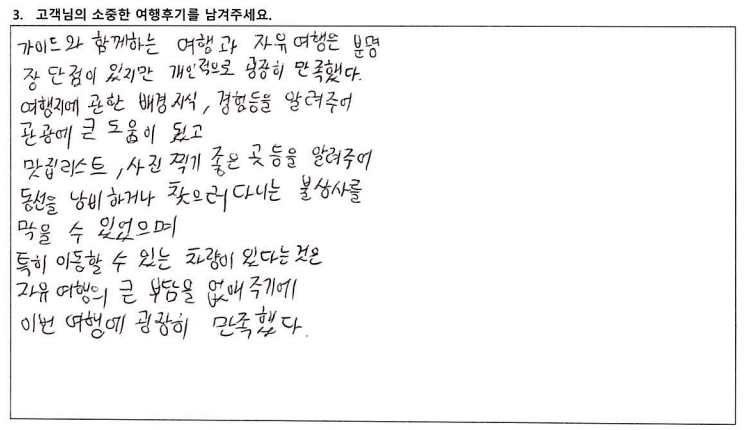 3. 고객님의 소중한 여행후기를 남겨주세요.
가이드와 함께하는 여행과 자유여행은 분명
장단점이 있지만 개인적으로 굉장히 만족했다.
여행지에 관한 배경지식, 경험등을 알려주어
관광에 큰 도움이 됬고
맛집리스트, 사진 찍기 좋은 곳 등을 알려주어
동선을 낭비하거나 찾으러 다니는 불상사를
막을 수 있었으며
특히 이동할 수 있는 차량이 있다는것은
자유여행의 큰 부담을 없애주기에
이번 여행에 굉장히 만족했다.